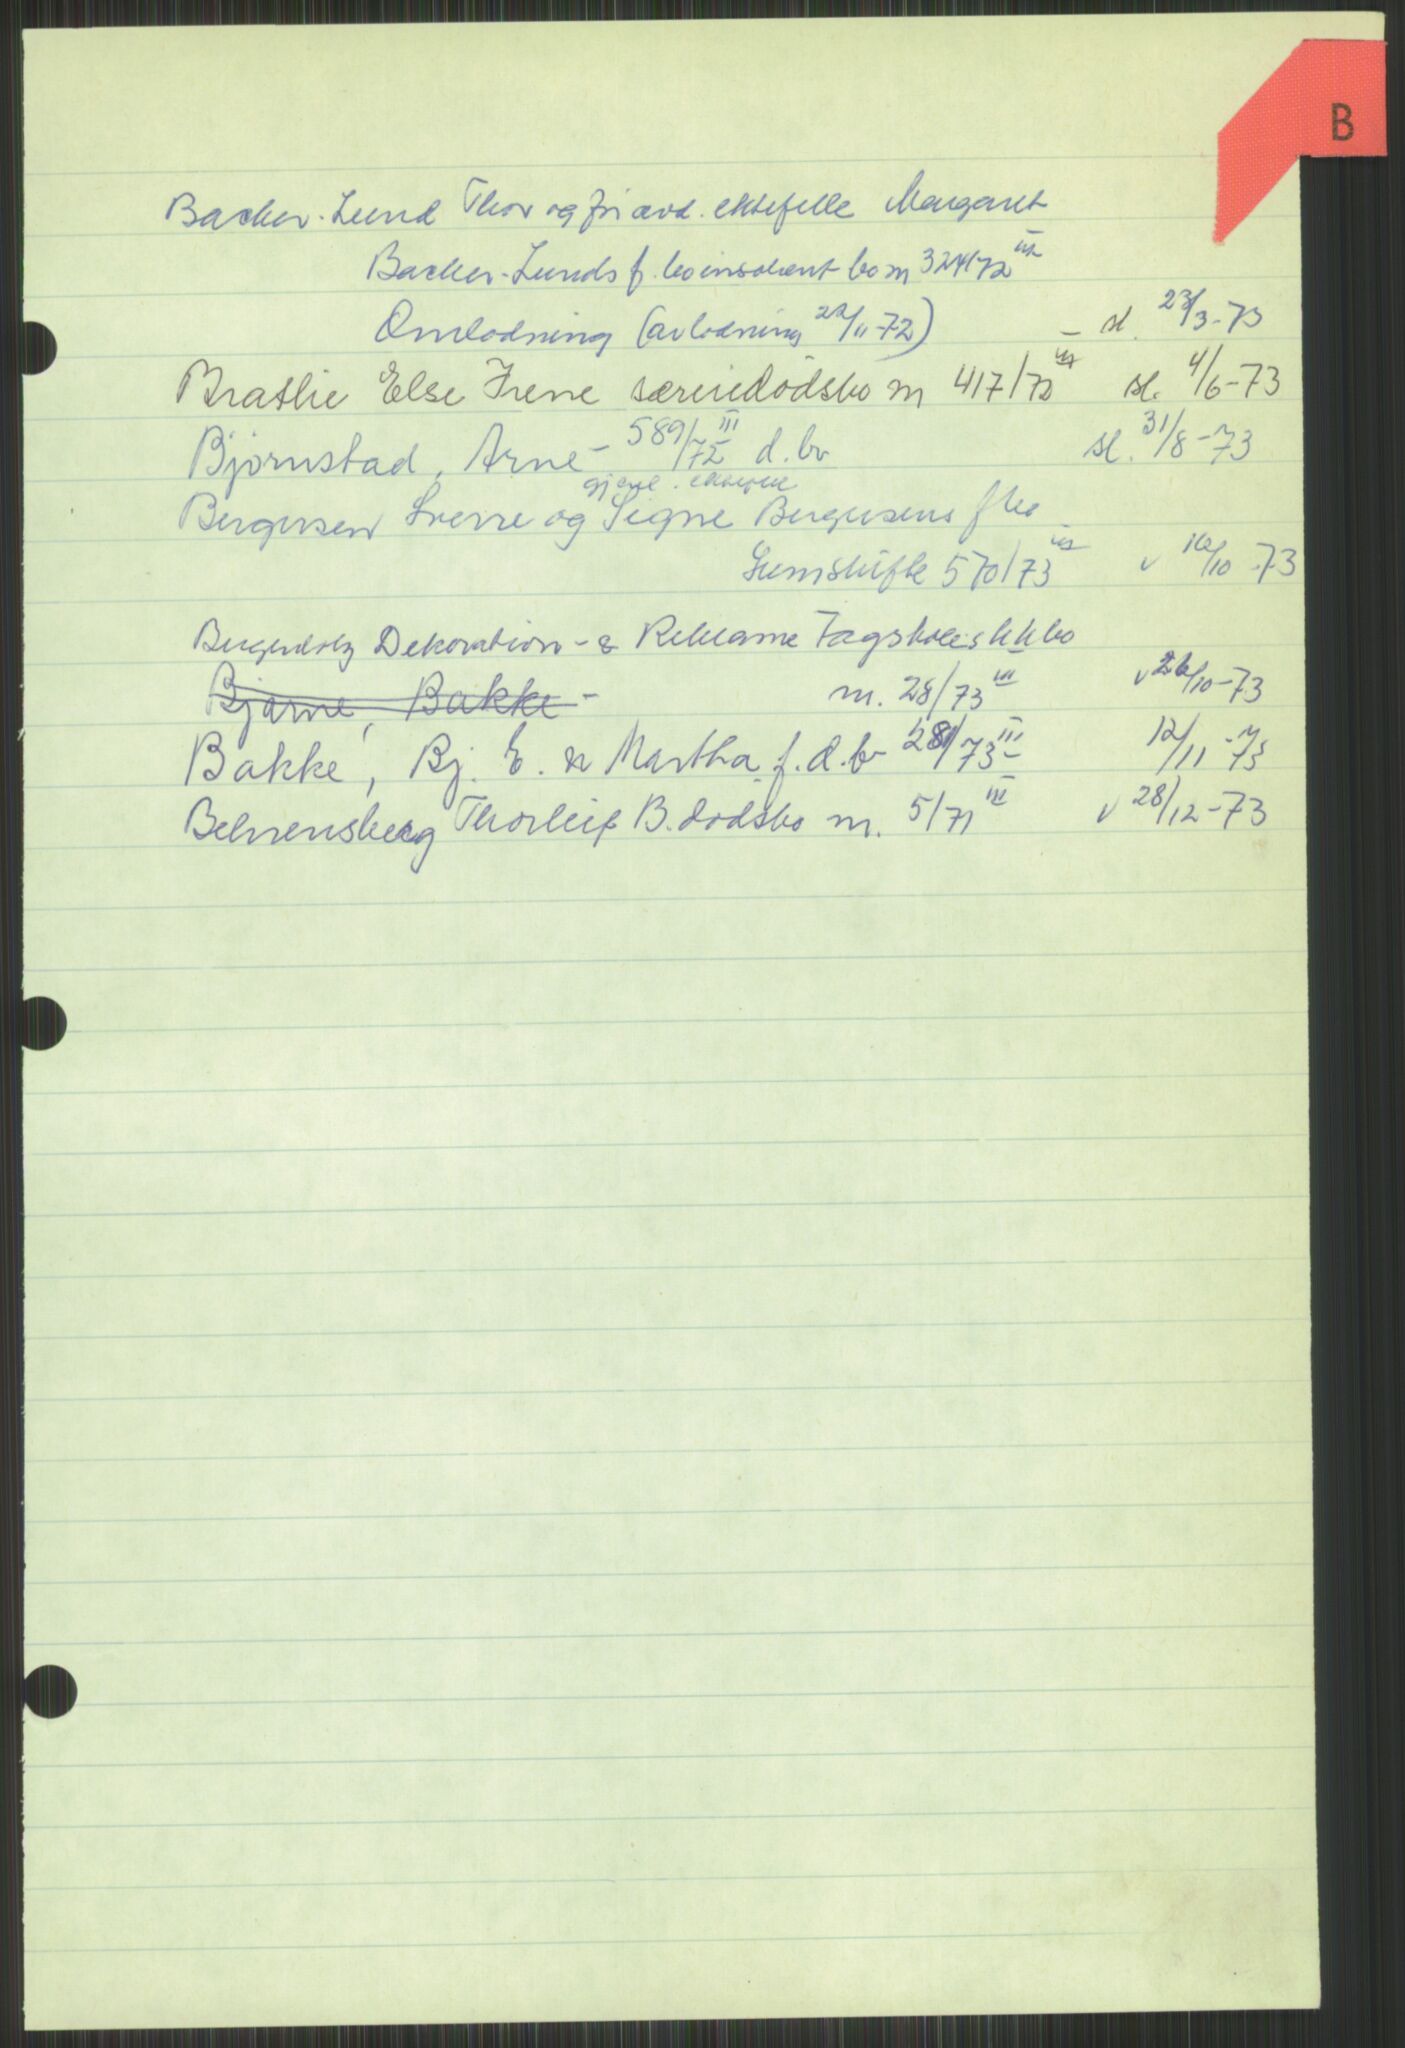 B
Backer-Lund Thor og fravd. ektefelle Margaret
Backer-Lunds f. bo insolvent bo m 324/72 III
Omlodning (avlodning 22/11-72) - sl. 23/3-73
Bratlie Else Irene særeiedødsbo m 417/72 III sl. 4/6-73
Bjørnstad, Arne - 589/72 III d.bo sl. 31/8-73
gjenl. ektefelle
Bergersen Sverre og Signe Bergersens f bo
Sumskifte 570/73 III v 16/10-73
Dekoration- & Reklame Fagskoles kkbo
Bjarne, Bakke - m. 28/73 III v 26/10-73
Bakke, Bj. E. & Martha f.d.bo 281/73 III - 12/11-73
Behrensberg Thorleif B. dødsbo m. 5/71 III v 28/12-73